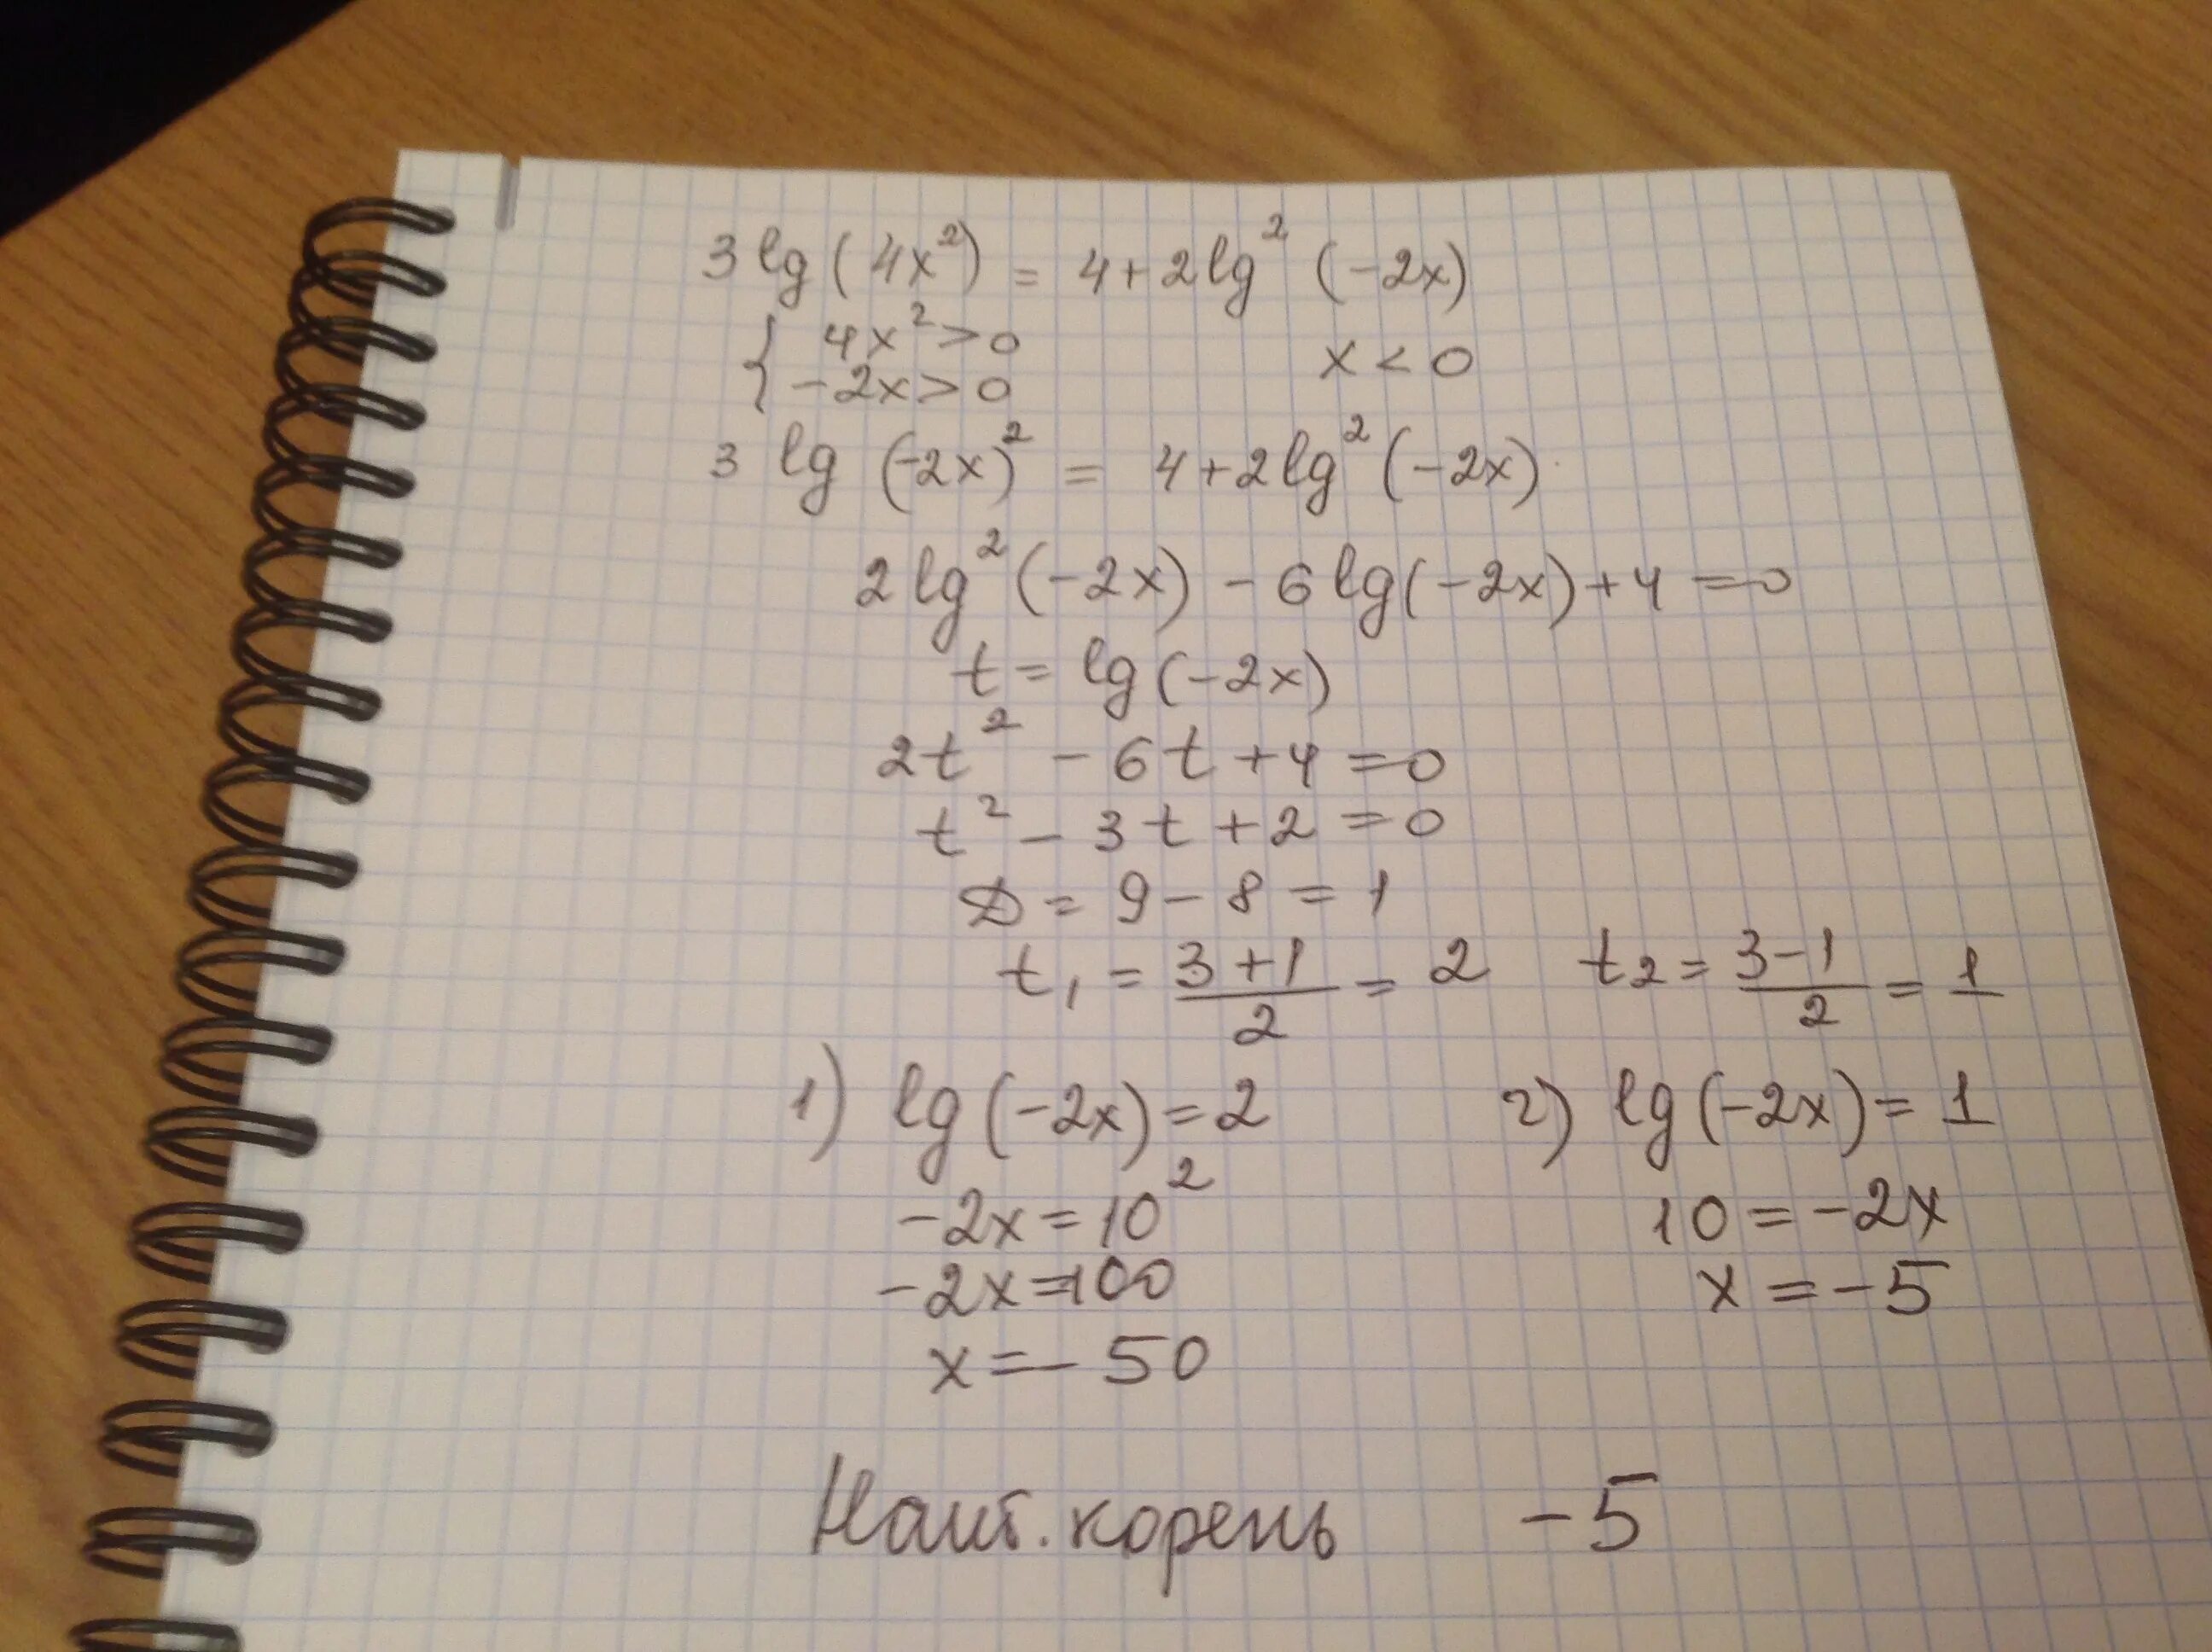 3 lg (4x²) = 4 + 2 lg² (-2x)
{ 4x² > 0
-2x > 0
x < 0
3 lg (-2x)² = 4 + 2 lg² (-2x)
2 lg² (-2x) - 6 lg (-2x) + 4 = 0
t = lg (-2x)
2t² - 6t + 4 = 0
t² - 3t + 2 = 0
D = 9 - 8 = 1
t₁ = (3+1)/2 = 2 t₂ = (3-1)/2 = 1
1) lg (-2x) = 2
-2x = 10²
-2x = 100
x = -50
2) lg (-2x) = 1
10 = -2x
x = -5
Наиб. корень -5